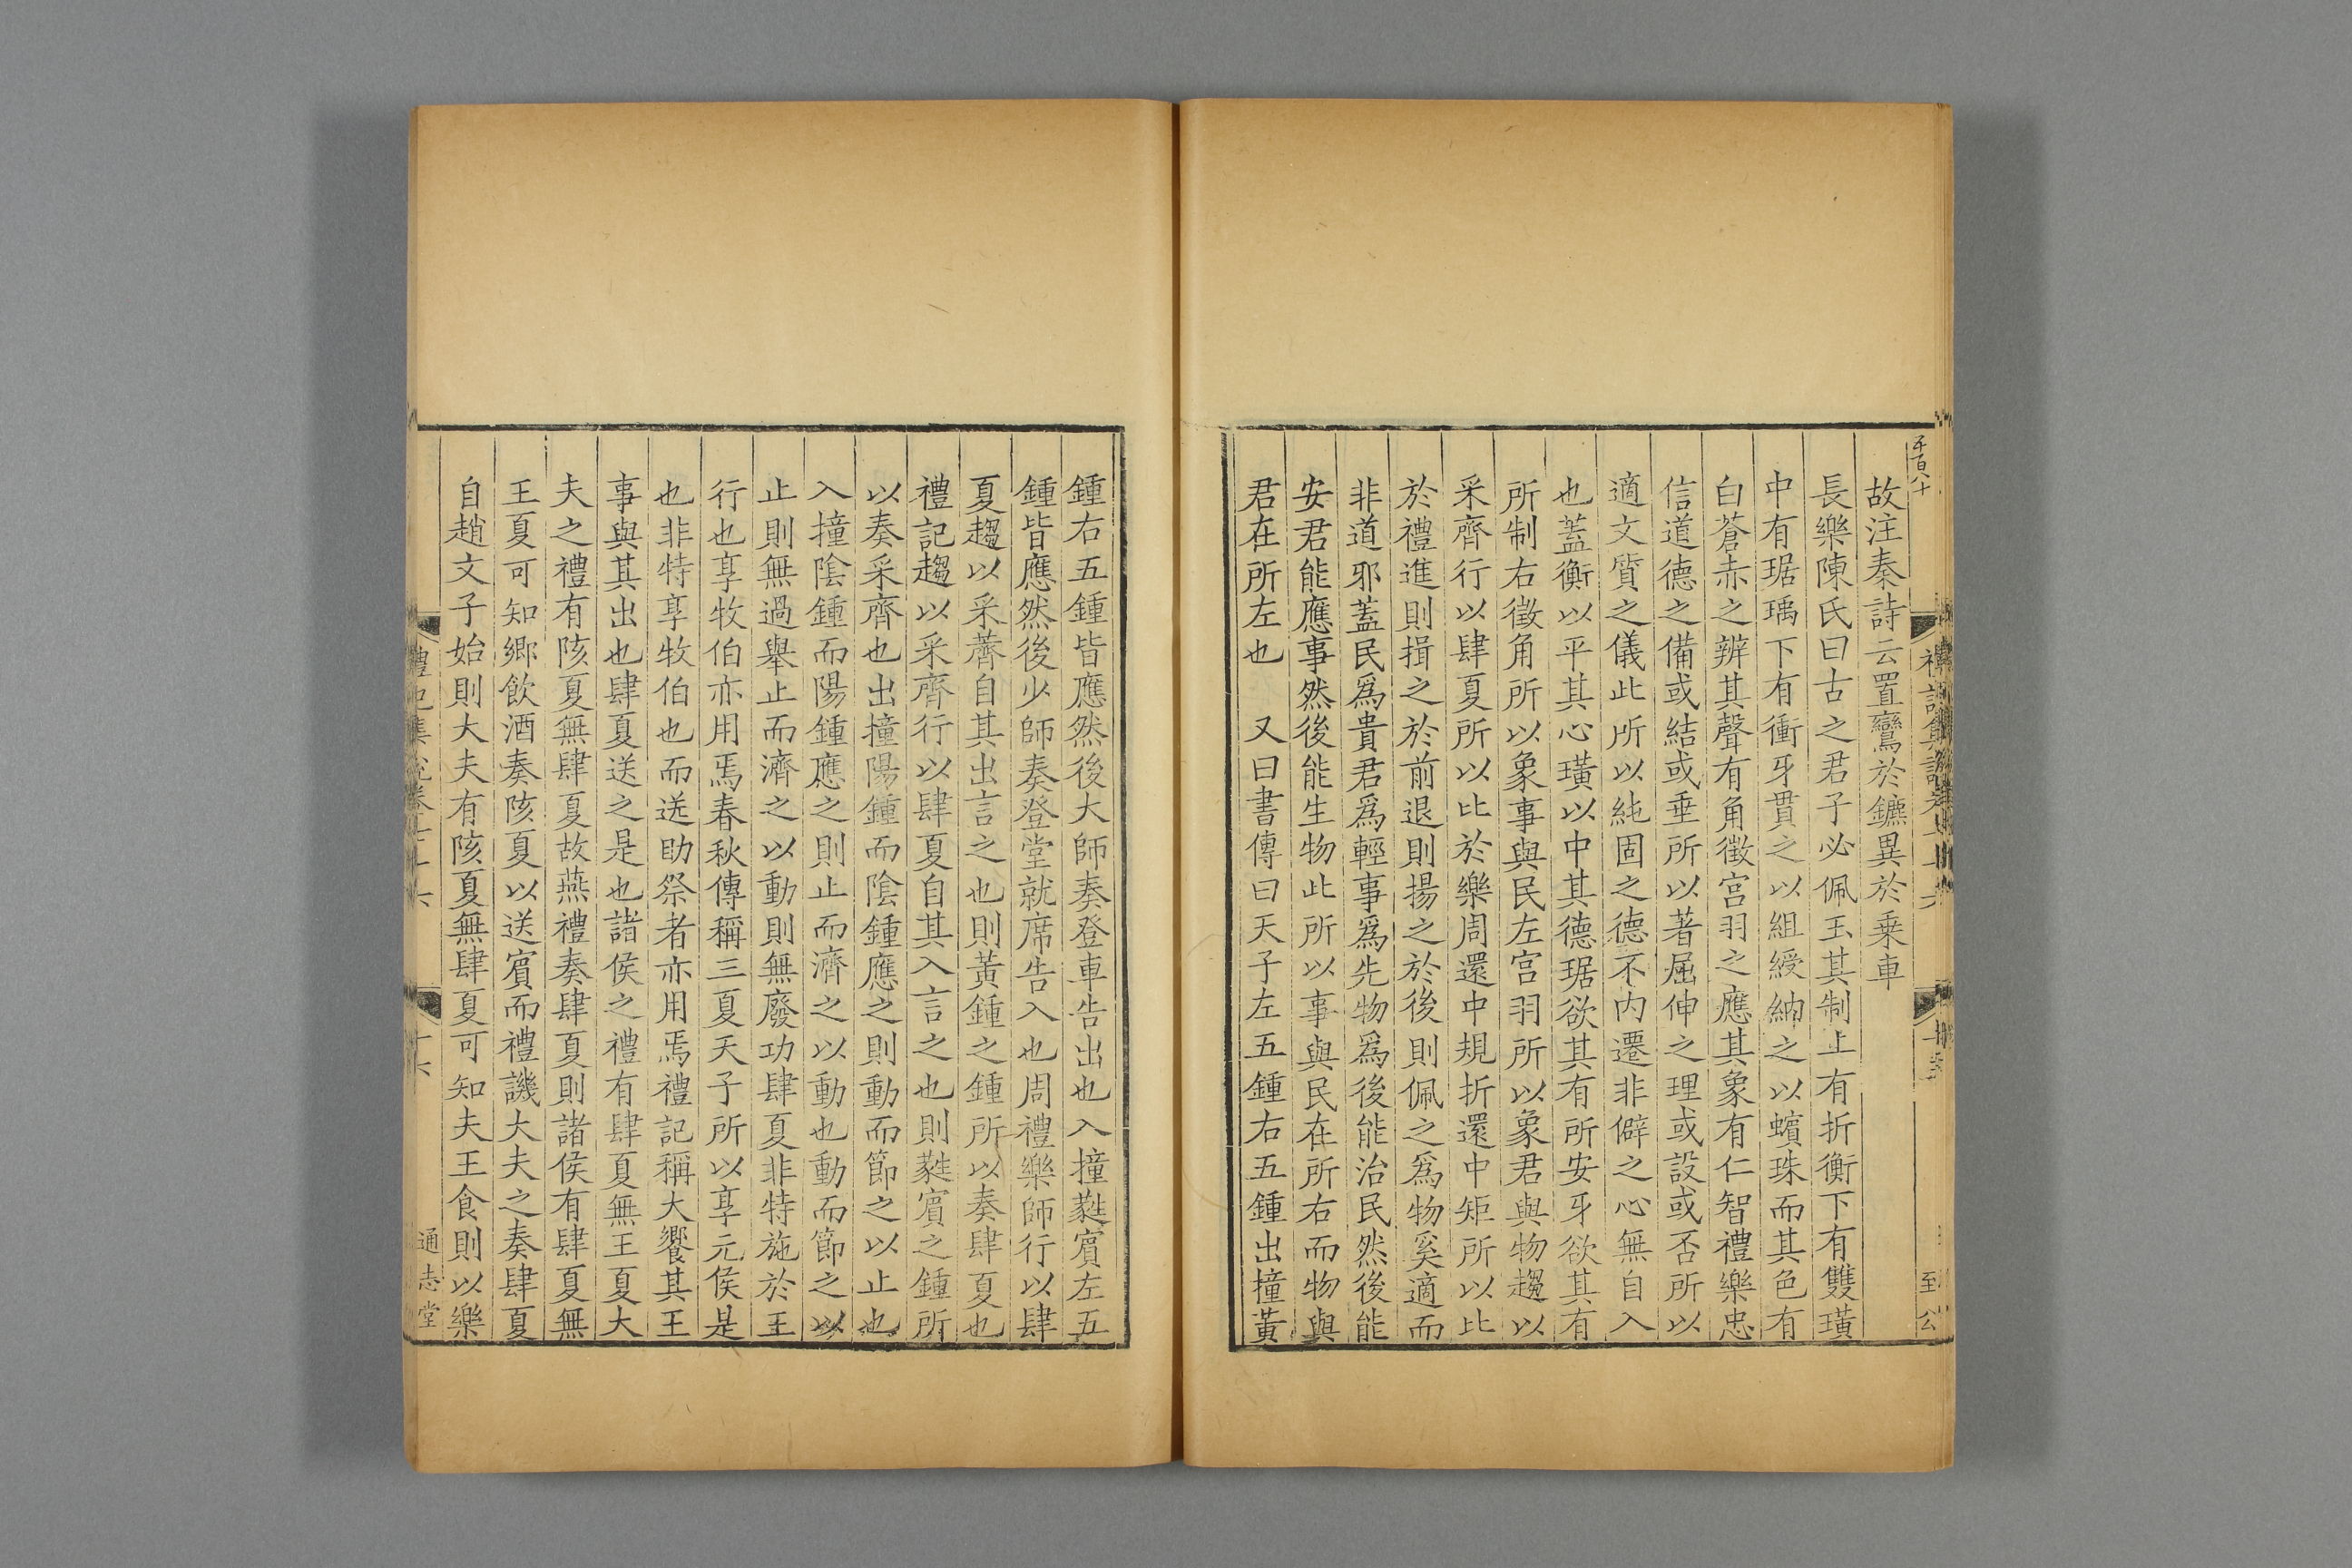 故注秦詩云置鸞於鑣異於乗車
長樂陳氏曰古之君子必佩玉其制上有折衡下有雙璜
中有琚瑀下有衝牙貫之以組綬納之以蠙珠而其色有
白蒼赤之辨其聲有角徵宫羽之應其象有仁智禮樂忠
信道德之備或結或垂所以著屈伸之理或設或否所以
適文質之儀此所以純固之德不内遷非僻之心無自入
也蓋衡以平其心璜以中其德琚欲其有所安牙欲其有
所制右徵角所以象事與民左宫羽所以象君與物趨以
采齊行以肆夏所以比於樂周還中規折還中矩所以比
於禮進則揖之於前退則揚之於後則佩之爲物奚適而
非道邪蓋民爲貴君爲輕事爲先物爲後能治民然後能
安君能應事然後能生物此所以事與民在所右而物與
君在所左也　又曰書傳曰天子左五鍾右五鍾出撞黃
鍾右五鍾皆應然後大師奏登車告出也入撞蕤賓左五
鍾皆應然後少師奏登堂就席告入也周禮樂師行以肆
夏趨以采薺自其出言之也則黃鍾之鍾所以奏肆夏也
禮記趨以采齊行以肆夏自其入言之也則蕤賓之鍾所
以奏采齊也出撞陽鍾而隂鍾應之則動而節之以止也
入撞隂鍾而陽鍾應之則止而濟之以動也動而節之以
止則無過舉止而濟之以動則無廢功肆夏非特施於王
行也享牧伯亦用焉春秋傳稱三夏天子所以享元侯是
也非特享牧伯也而送助祭者亦用焉禮記稱大饗其王
事與其出也肆夏送之是也諸侯之禮有肆夏無王夏大
夫之禮有陔夏無肆夏故燕禮奏肆夏則諸侯有肆夏無
王夏可知鄉飲酒奏陔夏以送賓而禮譏大夫之奏肆夏
自趙文子始則大夫有陔夏無肆夏可知夫王食則以樂
通志堂